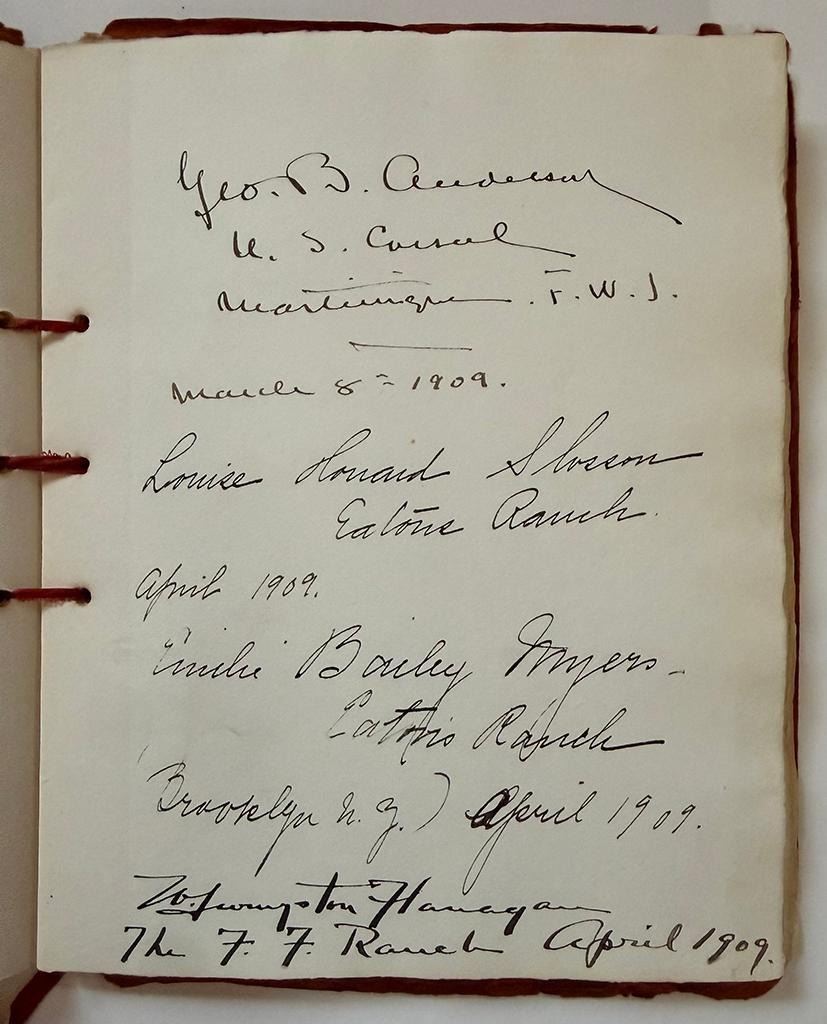 Geo. B. Anderson
U. S. Consul
Martinique . F. W. I.
March 8th 1909.
Louise Howard Slosson
Eatons Ranch.
April 1909.
Emilie Bailey Myers -
Eatons Ranch
Brooklyn N. Y.) April 1909.
W. Livingston Flanagan
The F. F. Ranch April 1909.